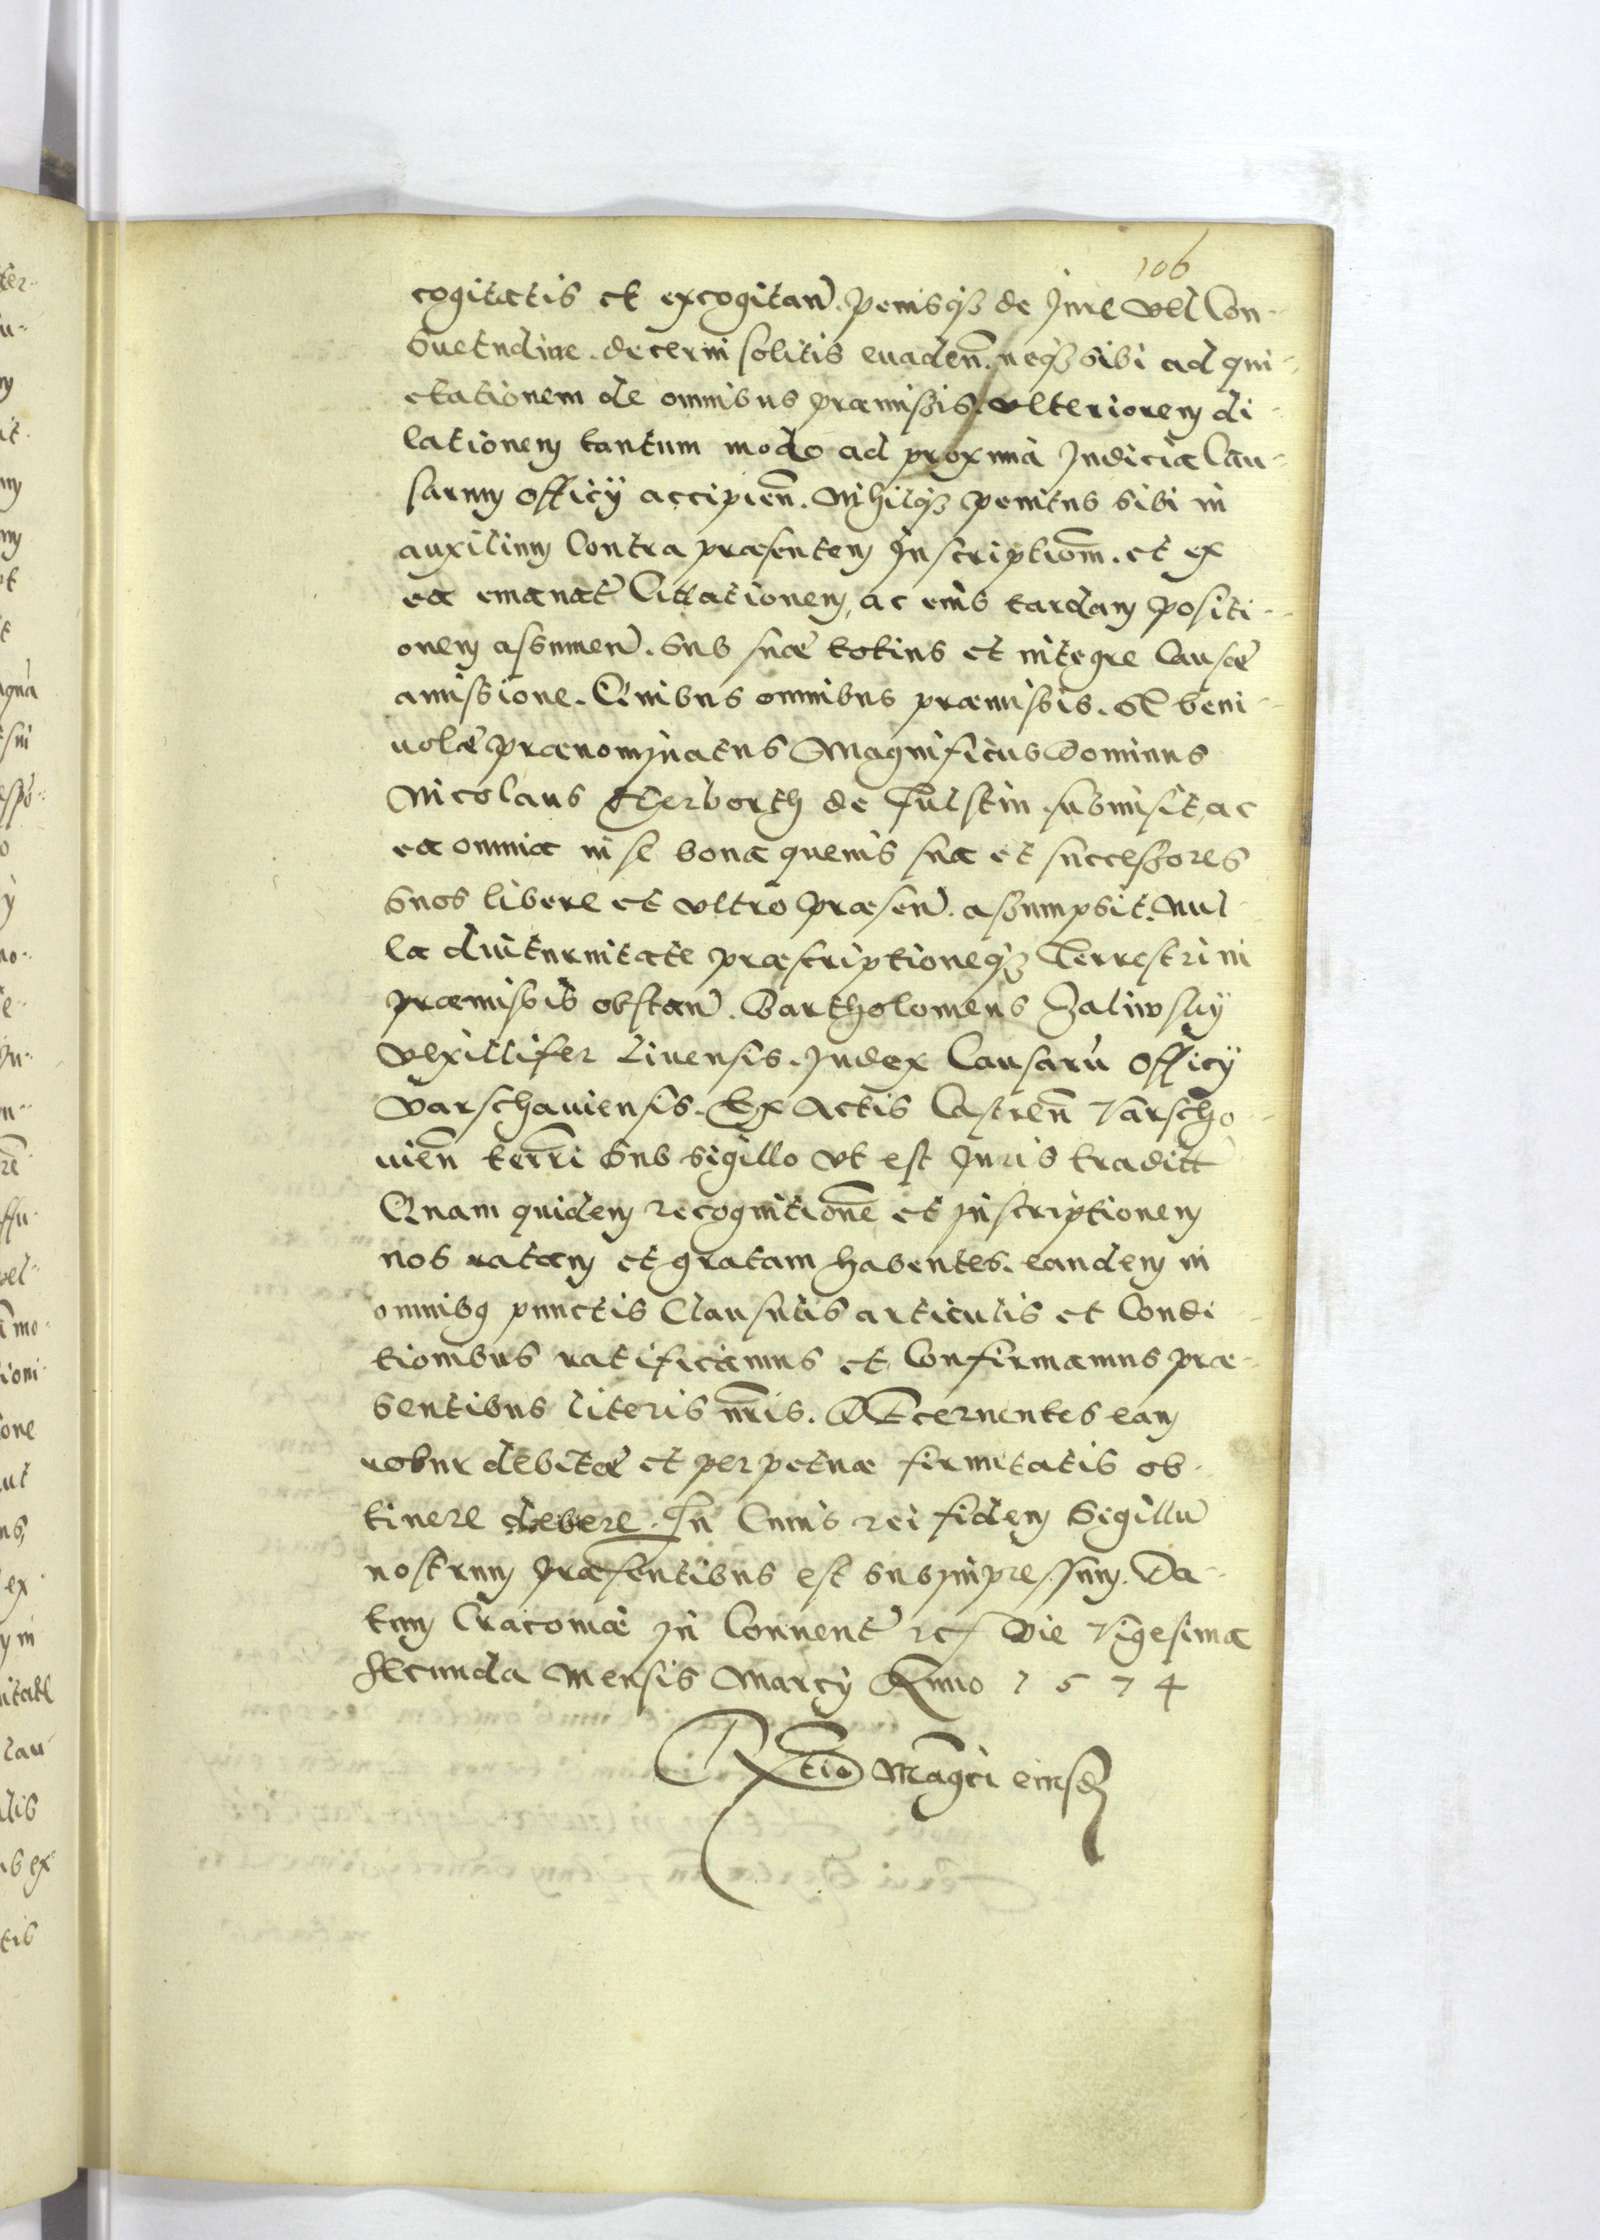 106
cogitatis et excogitan̄. penisqȝ de Jure vel Con-
suetudine. decerni solitis euaden̄. neqȝ sibi ad qui-
etationem de omnibus præmissis. vlteriorem di-
lationem tantum modo ad proxima Judicia Cau-
sarum Officÿ accipien̄. Nihilqȝ penitus sibi in
auxilium Contra præsentem Inscriptiom̄. et ex
ea emanat̄ Cittationem, ac eius tardam positi-
onem assumen̄. sub suæ totius et integre Causæ
amissione. Quibus omnibus præmissis. se beni-
uolæ prænominatus Magnificus Dominus
Nicolaus Herborth de Fulstin. submisit, ac
ea omnia in se bona queuis sua et successores
suos libere et vltro præsen̄. assumpsit. Nul-
la diuturnitate præscriptioneqȝ Terrestri in
præmissis obstan̄. Bartholomeus Zaliwskÿ
Vexillifer Liuensis. Judex Causarū Officÿ
Varschauiensis. Ex Actis Castren̄ Varscho-
uien̄ terrī sub sigillo vt est Juris traditt
Quam quidem recognitionē et inscriptionem
nos ratam et gratam habentes. eandem in
omnibꝰ punctis Clausulis articulis et Condi-
tionibus ratificamus et Confirmamus præ-
sentibus literis nr̄is. DEcernentes eam
robur debitæ et perpetuæ firmitatis ob-
tinere debere. In Cuius rei fidem Sigillū
nostrum præsentibus est subimpressum. Da-
tum Cracouiæ in Conuent̄ etc Die Vigesima
secunda Mensis Marcÿ Anno 1574
Rx̄tio Magcī eiusd̄